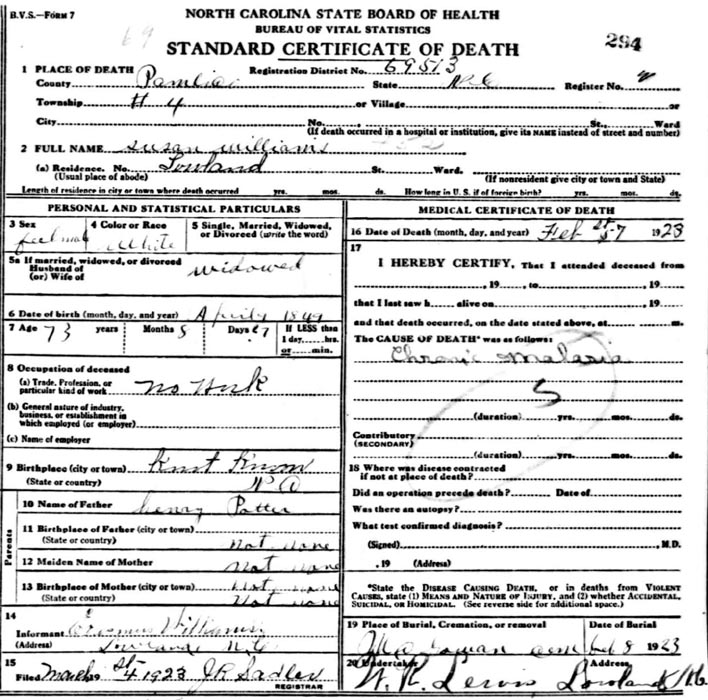 B.V.S.—FORM 7
NORTH CAROLINA STATE BOARD OF HEALTH
BUREAU OF VITAL STATISTICS
STANDARD CERTIFICATE OF DEATH
69
294
1 PLACE OF DEATH Registration District No. 69513
County Pamlico State N.C. Register No.
Township # 4 or Village or
City No. St., Ward
(If death occurred in a hospital or institution, give its NAME instead of street and number)
2 FULL NAME Susan Williams
(a) Residence. No. Lowland St. Ward.
(Usual place of abode) (If nonresident give city or town and State)
Length of residence in city or town where death occurred yrs. mos. ds. How long in U. S. if of foreign birth? yrs. mos. ds.
PERSONAL AND STATISTICAL PARTICULARS
3 Sex 4 Color or Race 5 Single, Married, Widowed, or Divorced (write the word)
White
5a If married, widowed, or divorced
Husband of
(or) Wife of
widowed
6 Date of birth (month, day, and year) 1849
7 Age 73 years Months Days If LESS than
1 day, hrs.
or min.
8 Occupation of deceased
(a) Trade, Profession, or
particular kind of work No Work
(b) General nature of industry,
business, or establishment in
which employed (or employer)
(c) Name of employer
9 Birthplace (city or town)
(State or country)
Parents
10 Name of Father Henry Potter
11 Birthplace of Father (city or town)
(State or country) Not
12 Maiden Name of Mother Not
13 Birthplace of Mother (city or town) Not
(State or country) Not
14
Informant Williams
Lowland N.C.
15
Filed March 1923 J.R. Sadler
REGISTRAR
MEDICAL CERTIFICATE OF DEATH
16 Date of Death (month, day, and year) Feb 1923
17
I HEREBY CERTIFY, That I attended deceased from
, 19 , to , 19
that I last saw h alive on , 19
and that death occurred, on the date stated above, at m.
The CAUSE OF DEATH* was as follows:
Chronic Malaria
(duration) yrs. mos. ds.
Contributory
(SECONDARY)
(duration) yrs. mos. ds.
18 Where was disease contracted
if not at place of death?
Did an operation precede death? Date of
Was there an autopsy?
What test confirmed diagnosis?
(Signed) , M.D.
, 19 (Address)
*State the DISEASE CAUSING DEATH, or in deaths from VIOLENT
CAUSES, state (1) MEANS AND NATURE OF INJURY, and (2) whether ACCIDENTAL,
SUICIDAL, OR HOMICIDAL. (See reverse side for additional space.)
19 Place of Burial, Cremation, or removal Date of Burial
Feb 8 1923
20 Undertaker Address
Lewis Lowland N.C.